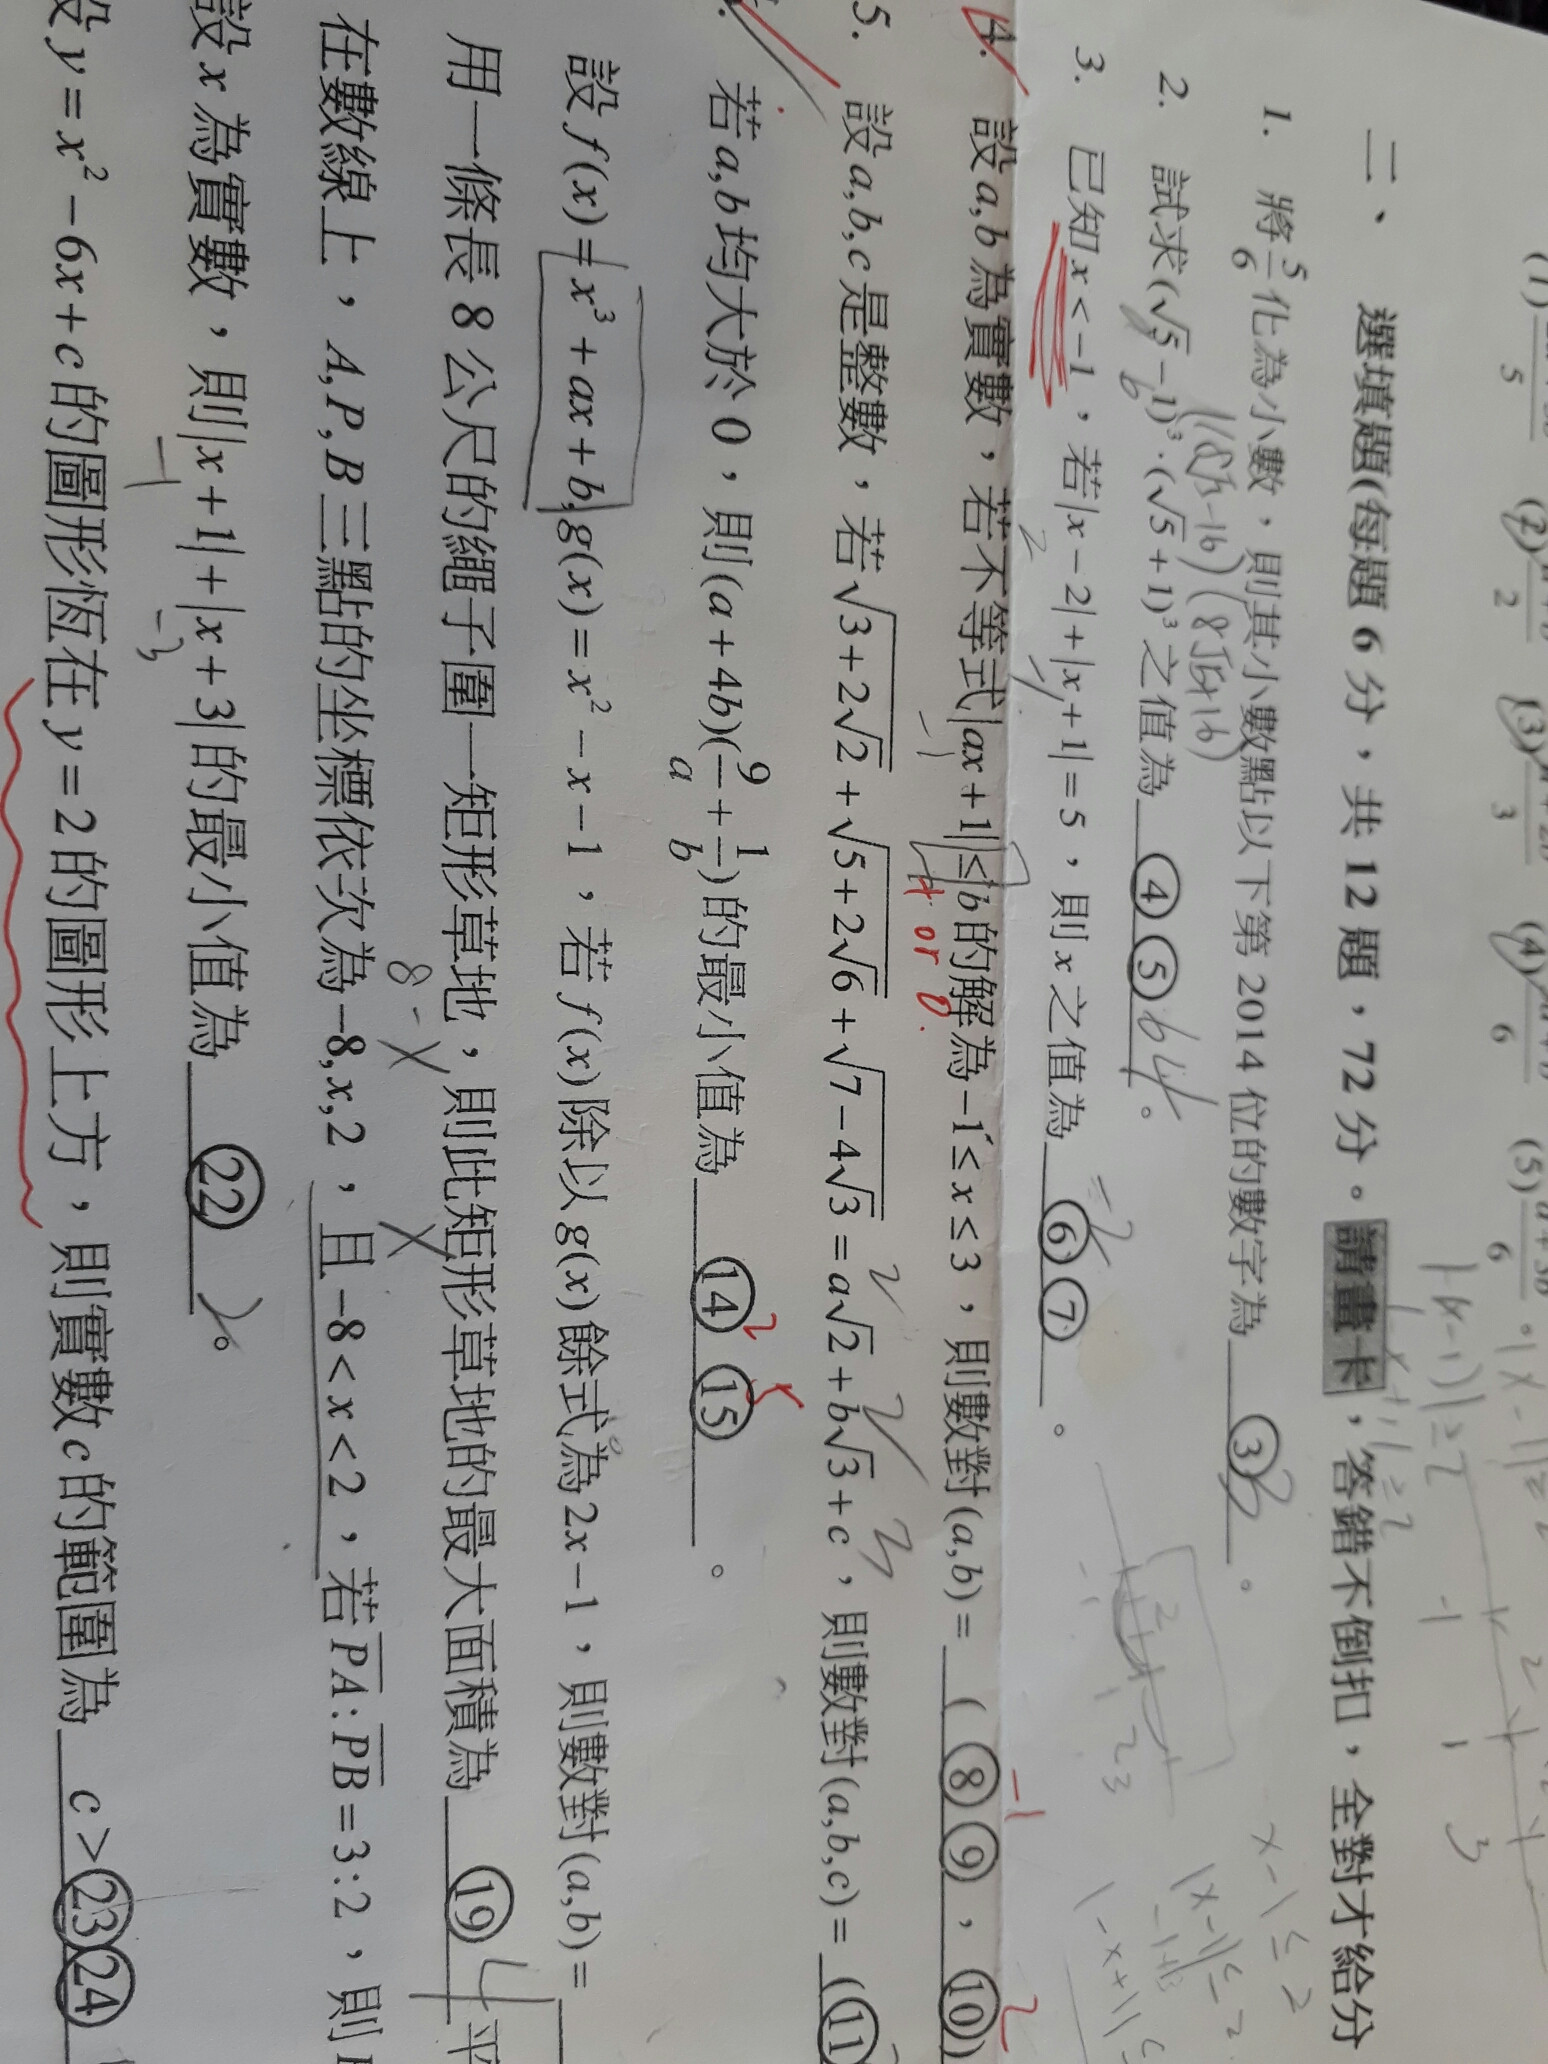 (1) 5 (2) 2 (3) 3 (4) 6 (5) a+3b/6 。
二、 選填題(每題 6 分，共 12 題，72 分。請畫卡，答錯不倒扣，全對才給分
1. 將 5/6 化為小數，則其小數點以下第 2014 位的數字為 ③ 。
2. 試求(√5−1)³·(√5+1)³之值為 ④⑤ 64 。
3. 已知 x<−1，若|x−2|+|x+1|=5，則 x 之值為 ⑥⑦ 。
4. 設 a,b 為實數，若不等式|ax+1|≤b 的解為−1≤x≤3，則數對(a,b)= (⑧⑨，⑩)
5. 設 a,b,c 是整數，若√(3+2√2)+√(5+2√6)+√(7−4√3)=a√2+b√3+c，則數對(a,b,c)= (⑪
若 a,b 均大於 0，則(a+4b)(9/a+1/b)的最小值為 ⑭⑮ 。
設 f(x)=x³+ax+b, g(x)=x²−x−1，若 f(x)除以 g(x)餘式為 2x−1，則數對(a,b)=
用一條長 8 公尺的繩子圍一矩形草地，則此矩形草地的最大面積為 ⑲ 4 平
在數線上，A,P,B 三點的坐標依次為−8,x,2，且−8<x<2，若PA:PB=3:2，則
設 x 為實數，則|x+1|+|x+3|的最小值為 ㉒ 2 。
設 y=x²−6x+c 的圖形恆在 y=2 的圖形上方，則實數 c 的範圍為 c>㉓㉔